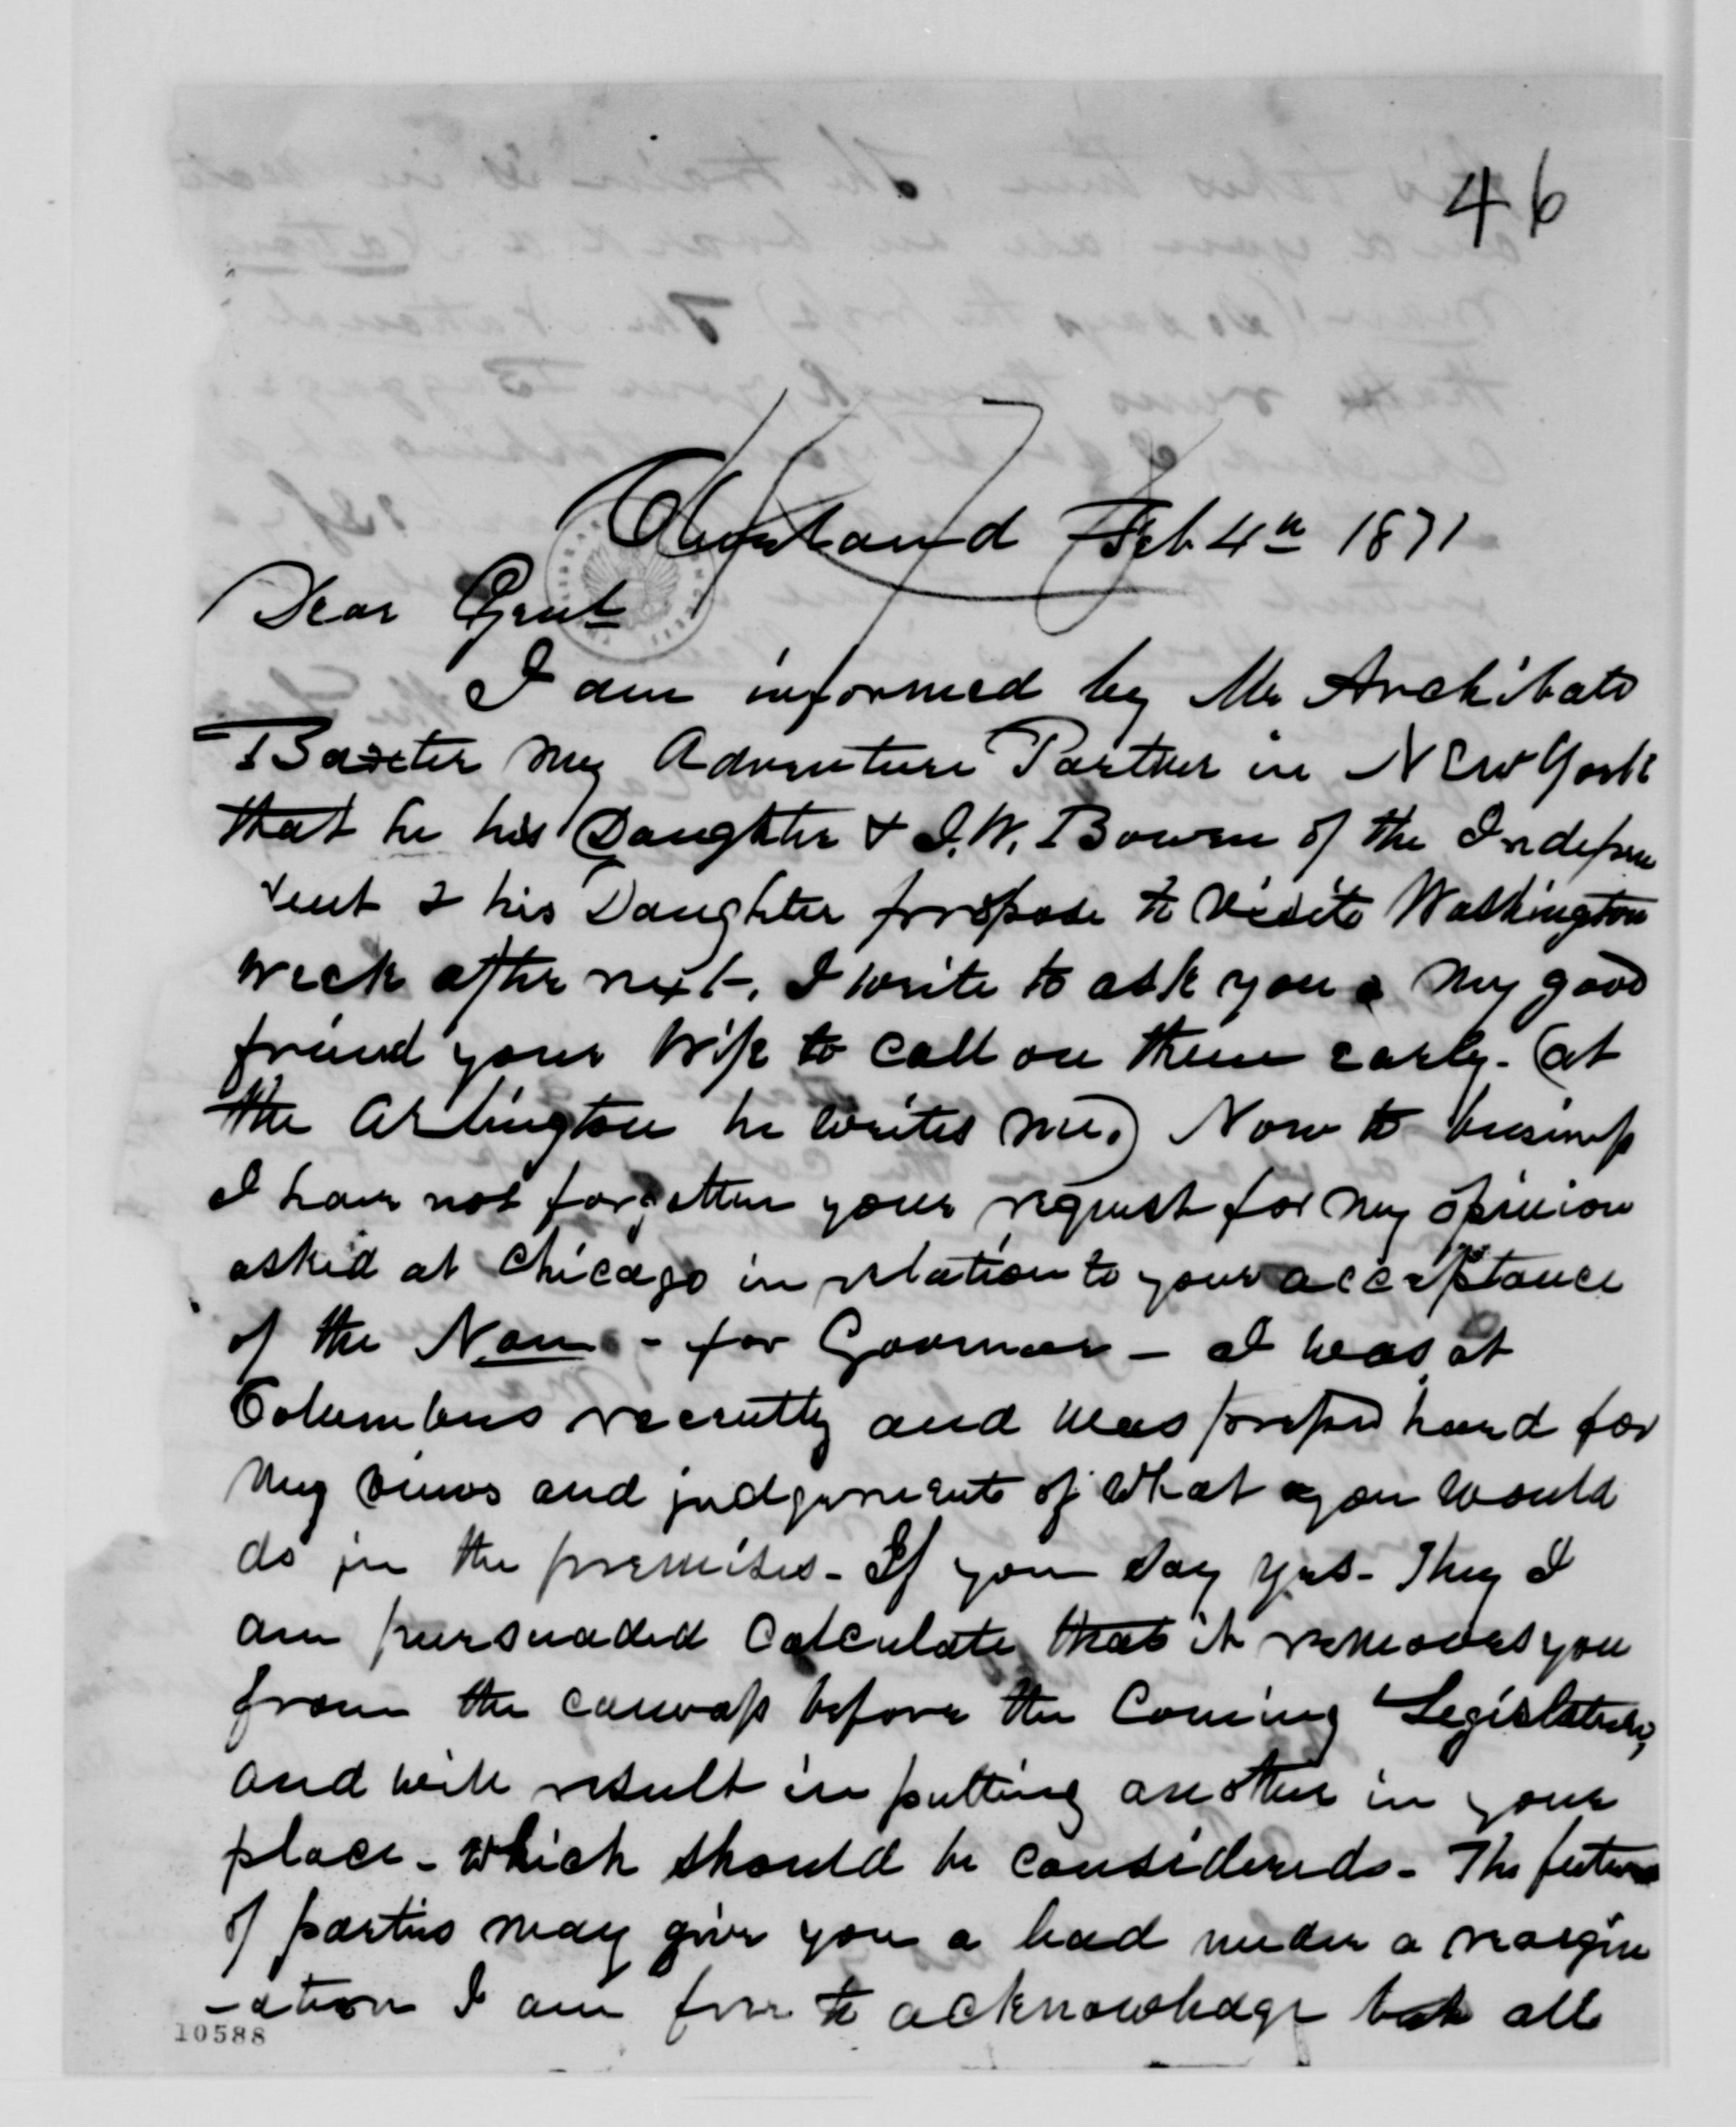 46
Cleveland Feb 4th 1871
Dear Genl
I am informed by Mr Archibald
Baxter my Adventure Partner in New York
that he his Daughter & I.W. Bowen of the Indepen
dent & his Daughter propose to visite Washington
week after next. I write to ask you & my good
friend your Wife to call on them early. (at
the Arlington he writes me.) Now to business
I have not forgotten your request for my opinion
asked at Chicago in relation to your acceptance
of the Nom - for Governor - I was at
Columbus recently and was pressed hard for
my views and judgements of what you would
do in the premises - If you say yes - They I
am pursuaded Calculate that it removes you
from the canvass before the Coming Legislature,
and will result in putting another in your
place - which should be considered - The future
of parties may give you a lead under a
-ation I am free to acknowledge but all
10588